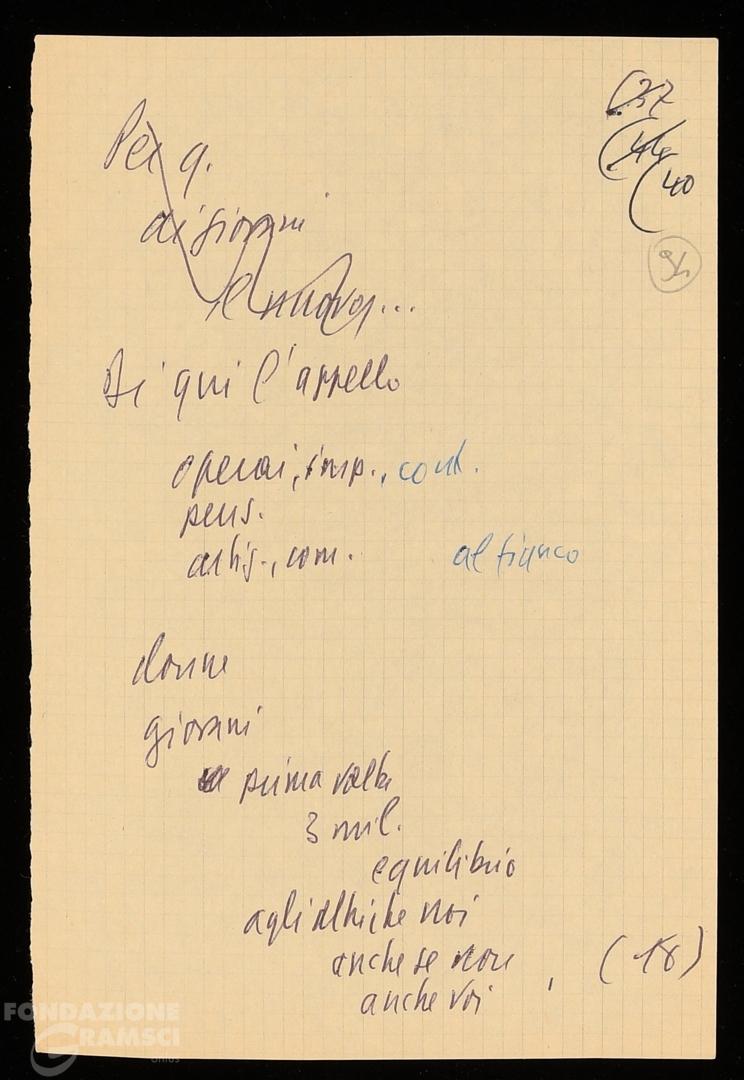 (37
(44
(40
94
Per q.
ai giovani
il nuovo...
Di qui l'appello
operai, imp., cont.
pens.
artig., com.
al fianco
donne
giovani
prima volta
3 mil.
equilibrio
agli altri che noi
anche se non
anche voi , (18)
FONDAZIONE
GRAMSCI
onlus